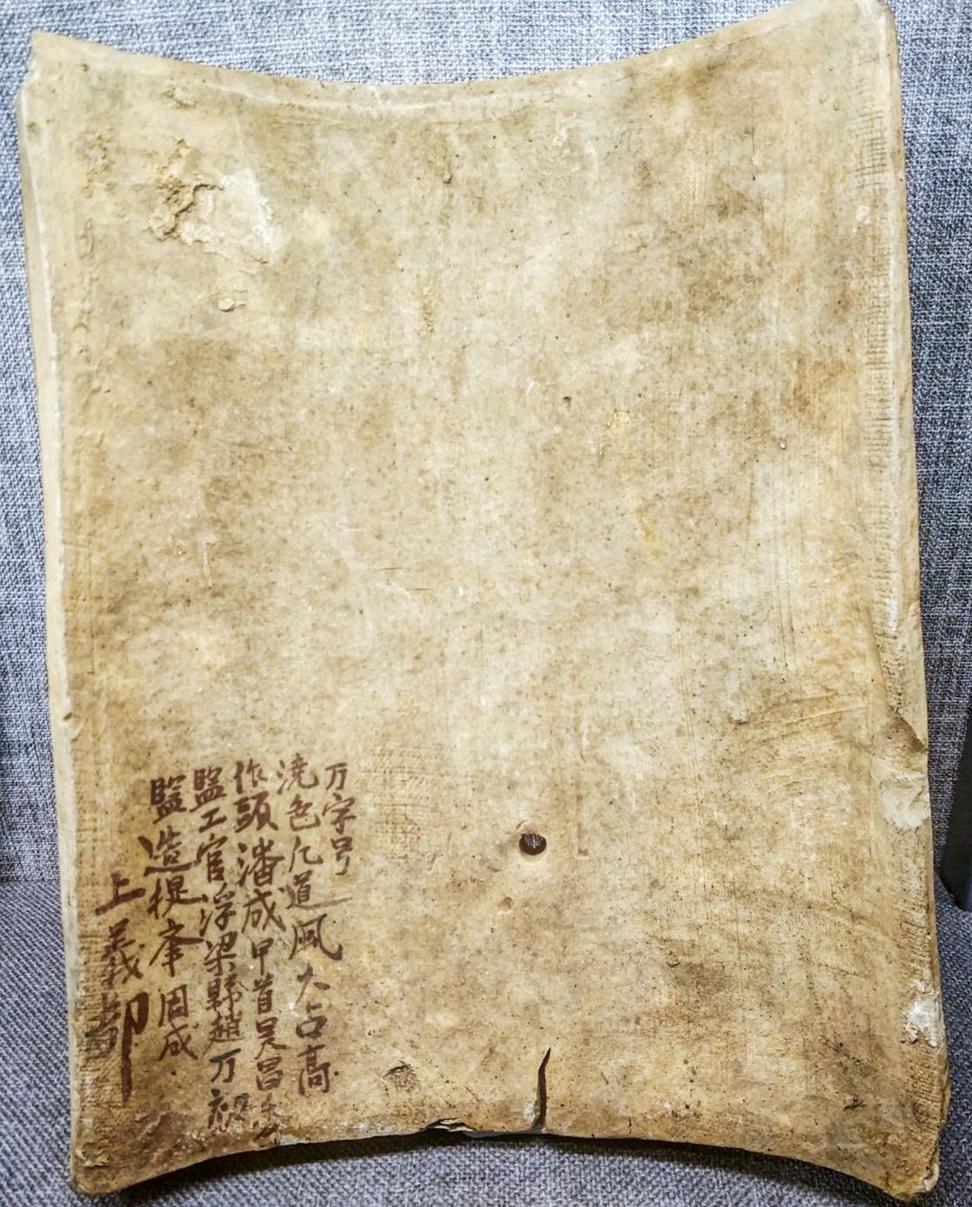 万字号
澆色凡道風火占高
作頭潘成甲首吳昌
監工官浮梁縣趙万初
監造提挙周成
上義都